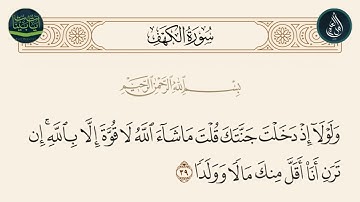 سُورَةُ الكَهْفِ
بِسْمِ ٱللَّهِ ٱلرَّحْمَٰنِ ٱلرَّحِيمِ
وَلَوْلَآ إِذْ دَخَلْتَ جَنَّتَكَ قُلْتَ مَا شَآءَ ٱللَّهُ لَا قُوَّةَ إِلَّا بِٱللَّهِ ۚ إِن
تَرَنِ أَنَا۠ أَقَلَّ مِنكَ مَالًا وَوَلَدًا ٣٩